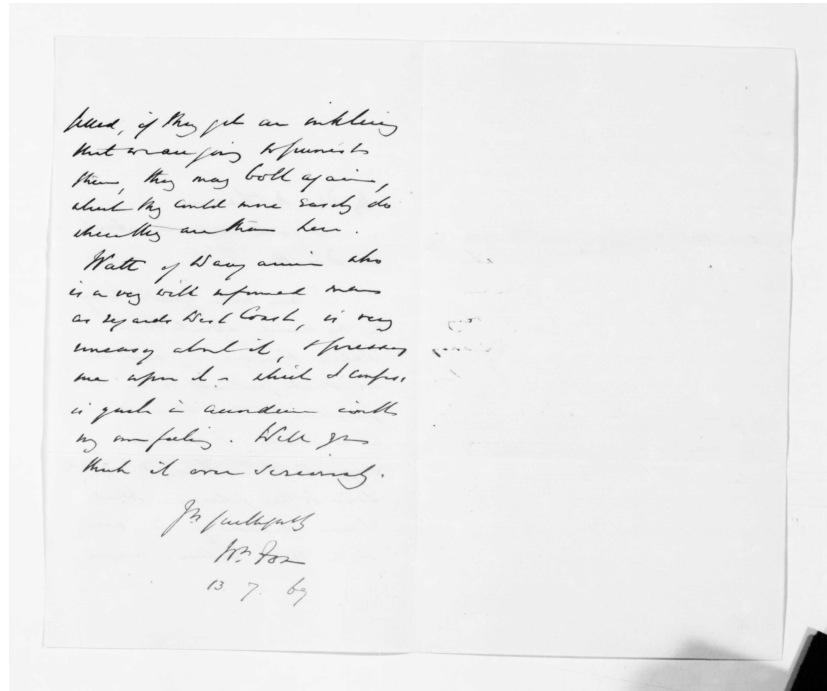 if they get an inkling
that we are going to punish
them, they may bolt again,
which they could more easily do
where they are than here.
Watt of Wanganui who
is a very well informed man
as regards West Coast, is very
uneasy about it, & presses
me upon it - which I confess
is quite in accordance with
my own feeling. Will you
think it over seriously.
Yrs faithfully
Wm Fox
13. 7. 69